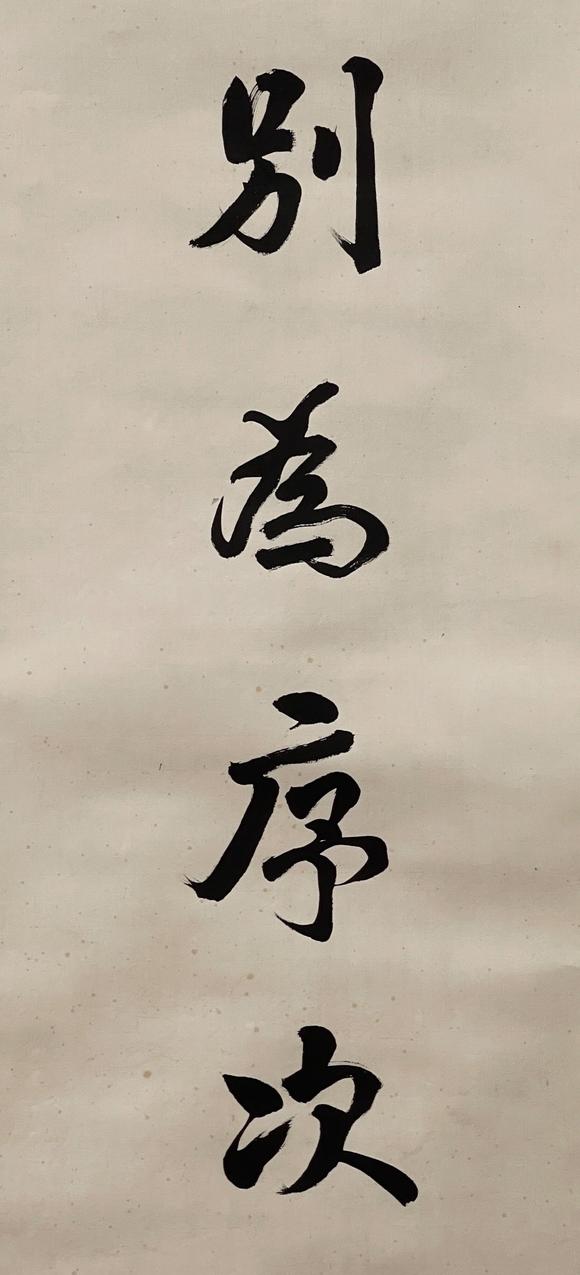 別為序次